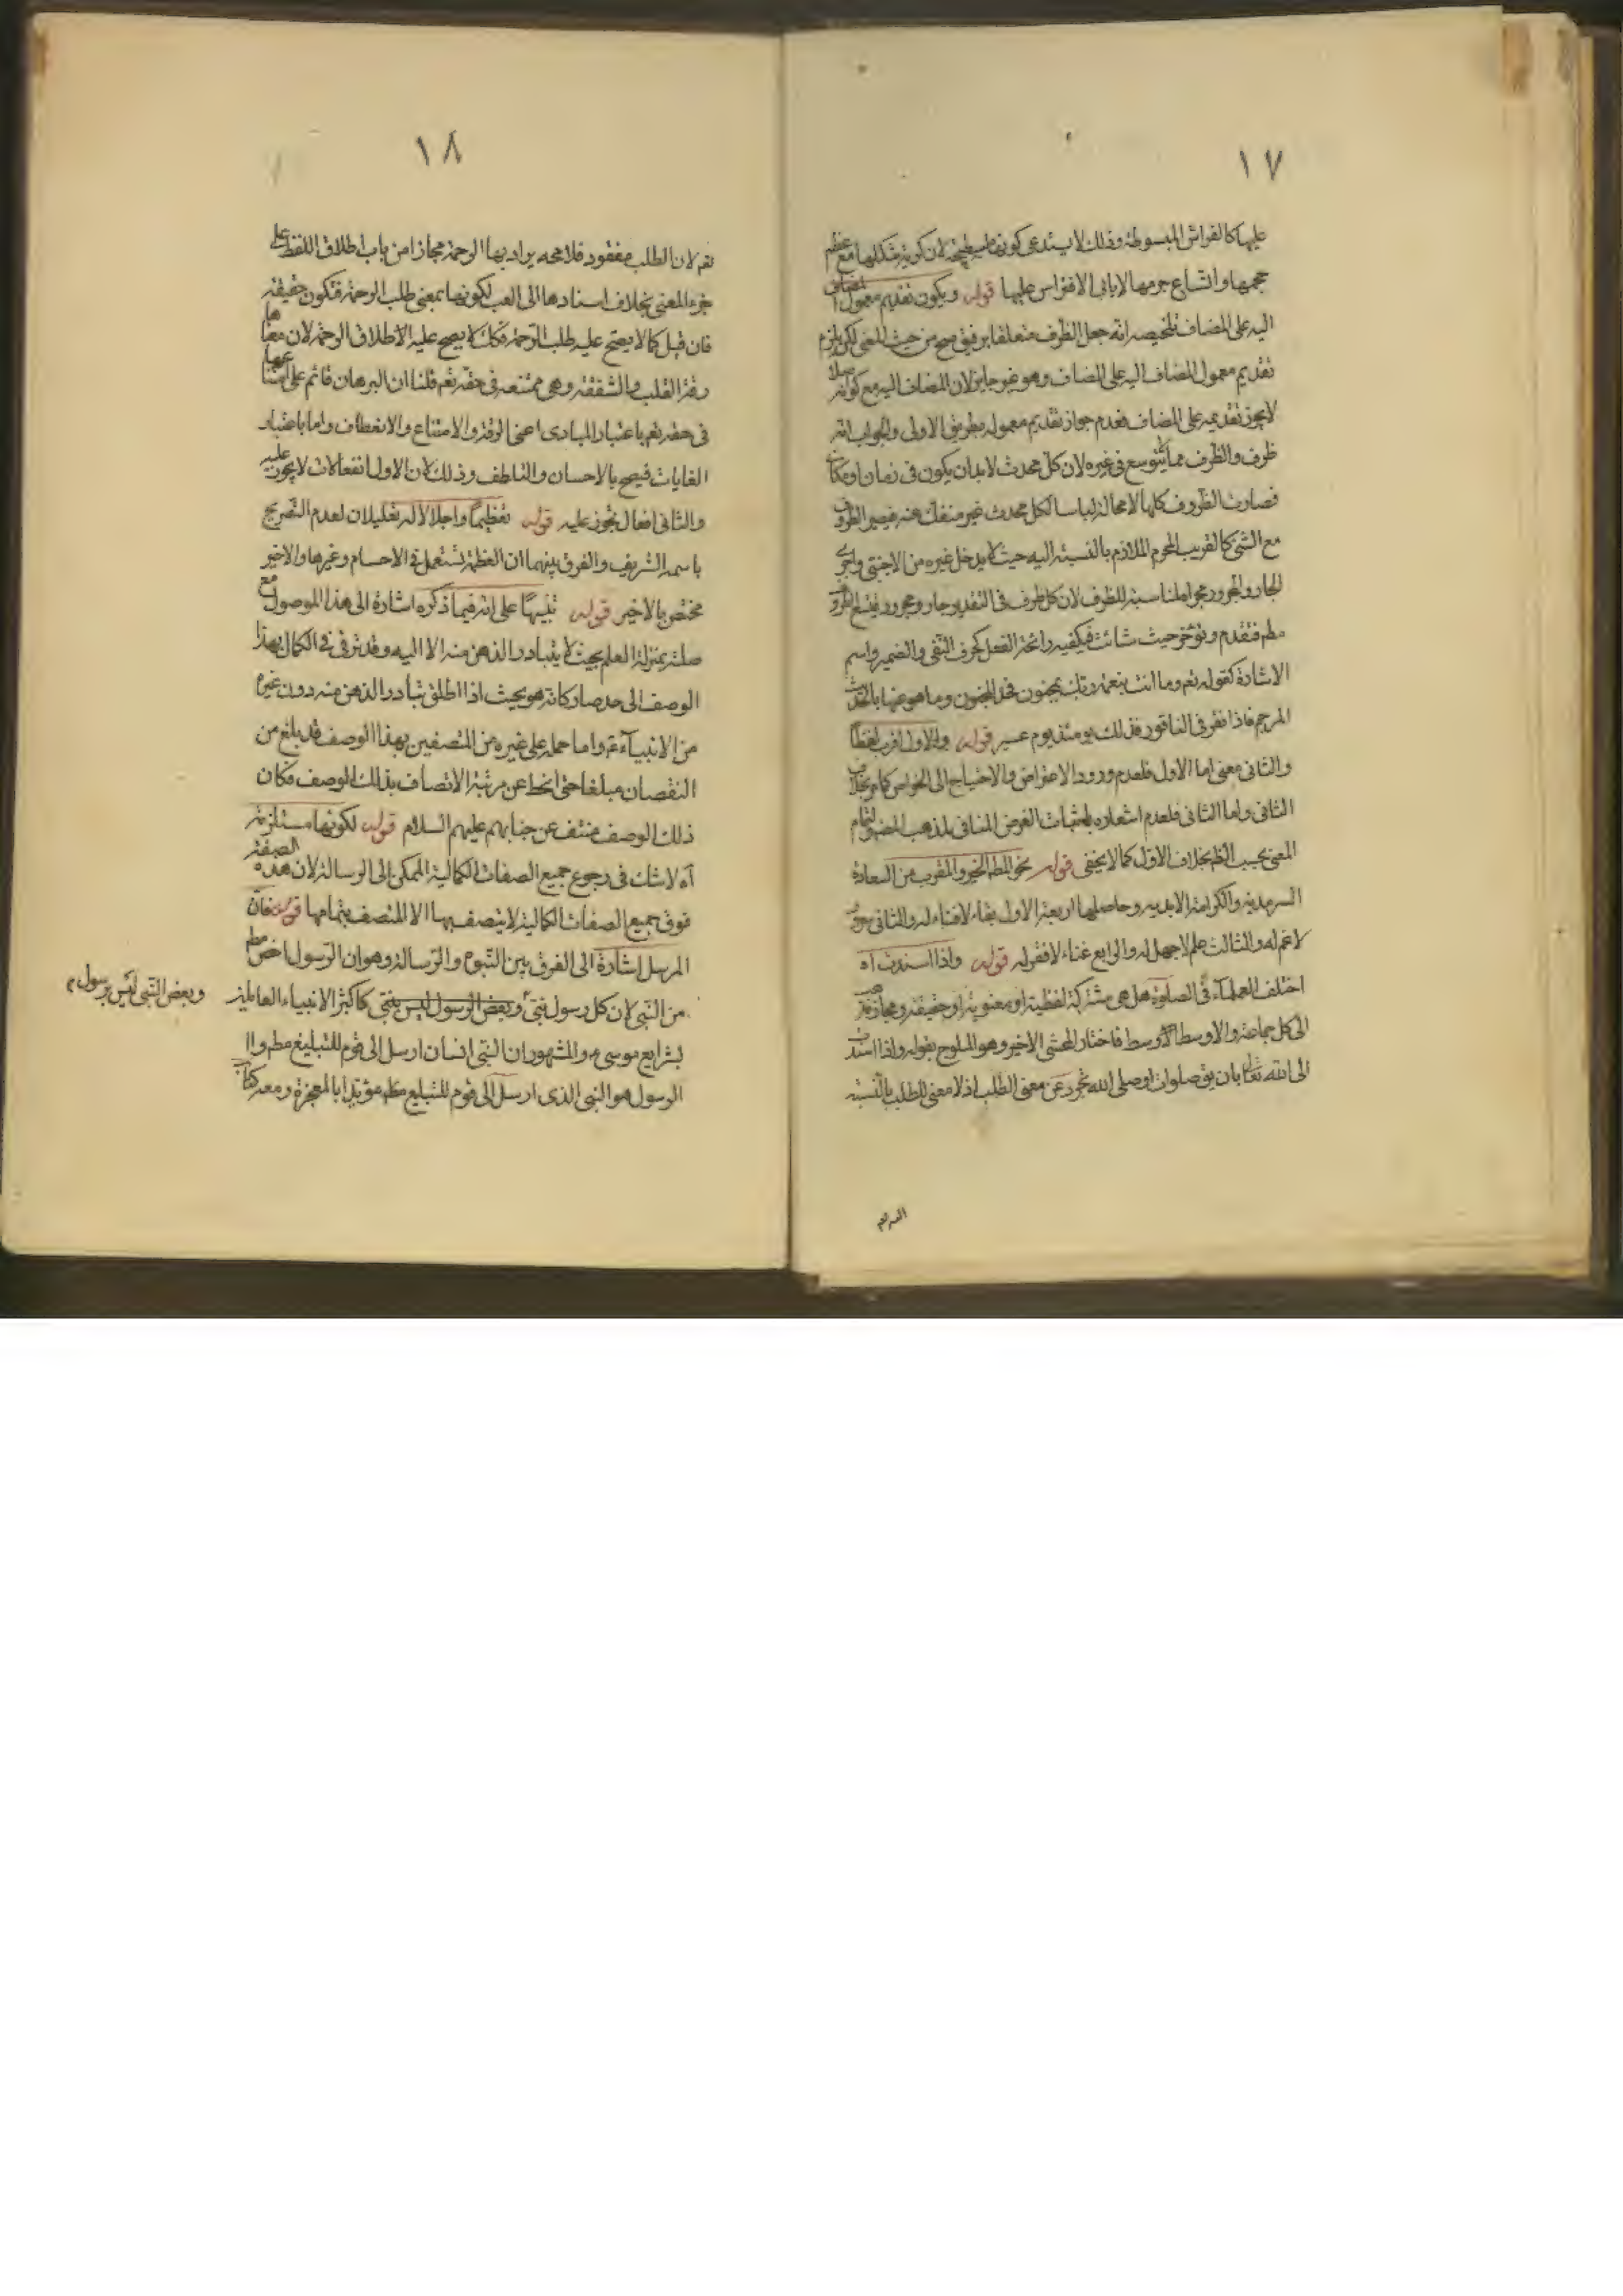 ١٧
عليها كالفراش المبسوطة وذلك لا يستدعى كونها مسطحة لان كرية شكلها مع عظم
حجمها واتساع جرمها لا يابى الافتراش عليها قوله ويكون تقديم معمول المضاف
اليه على المضاف تلخيصه انه جعل الظرف متعلقا برفيق صح من حيث المعنى لكن يلزم
تقديم معمول المضاف اليه على المضاف وهو غير جايز لان المضاف اليه مع كونه
لا يجوز تقديمه على المضاف فعدم جواز تقديم معموله بطريق الاولى والجواب انه
ظرف والظرف مما يتوسع فى غيره لان كل محدث لابد ان يكون فى زمان او مكان
فصارت الظروف كلها لا محالة لباسا لكل محدث غير منفك عنه فيصير الظروف
مع الشئ كالقريب المحرم الملازم بالنسبة اليه حيث لا يدخل غيره من الاجنبى واجرى
الجار والمجرور مجراه لمناسبة للظرف لان كل ظرف فى التقدير جار ومجرور
فتقدم وتؤخر حيث شائت فيكفيه رائحة الفعل كحرف النفى والضمير واسم
الاشارة كقوله تعم وما انت بنعمة ربك بمجنون وما هو عنها بالحديث
المرجم فاذا نقر فى الناقور فذلك يومئذ يوم عسير قوله والاول اقرب لفظا
والثانى معنى اما الاول فلعدم ورود الاعتراض والاحتياج الى الجواب كما مر بخلاف
الثانى واما الثانى فلعدم اشعاره باثبات الغرض المنافى لمذهب
المعنى بحسب الظم بخلاف الاول كما لا يخفى قوله نحو المطم الخير والمقرب من السعادة
السرمدية والكرامة الابدية وحاصلها اربعة الاول بقاء لا فناء له والثانى سرور
لا غم له والثالث علم لا جهل له والرابع غناء لا فقر له قوله واذا اسندت اه
اختلف العلماء فى الصلوة هل هى مشتركة لفظية او معنوية او حقيقة ومجاز ذهب
الى كل جماعة والاوسط الاوسط فاختار المحشى الاخير وهو الملوح بقوله واذا اسندت
الى الله تعالى بان يق صلوات او صلى الله تجرد عن معنى الطلب اذ لا معنى للطلب بالنسبة
١٨
تعم لان الطلب مفقود فلا محه يراد بها الرحمة مجازا من باب اطلاق اللفظ على
جزء المعنى بخلاف اسنادها الى العبد لكونها بمعنى طلب الرحمة فتكون حقيقة
فان قيل كما لا يصح عليه طلب الرحمة فكك لا يصح عليه الاطلاق الرحمة لان معناها
رقة القلب والشفقة وهى ممتنعه فى حقه تعم قلنا ان البرهان قائم على امتناعها
فى حقه تعم باعتبار المبادى اعنى الرقة والامتناع والانعطاف واما باعتبار
الغايات فيصح بالاحسان والتلطف وذلك لان الاول انفعالات لا يجوز عليه
والثانى افعال تجوز عليه قوله تعظيما واجلالا له تعليلان لعدم التصريح
باسمه الشريف والفرق بينهما ان العظمة تستعمل فى الاجسام وغيرها والاخير
مختص بالاخير قوله تنبيها على انه فيما ذكره اشارة الى هذا الموصول مع
صلته بمنزلة العلم بحيث لا يتبادر الذهن منه الا اليه وقد ترقى فى الكمال بهذا
الوصف الى حد صار كانه هو بحيث اذا اطلق تبادر الذهن منه دون غيره
من الانبياء ع واما حمله على غيره من المتصفين بهذا الوصف قد بلغ من
النقصان مبلغا حتى انحط عن مرتبة الاتصاف بذلك الوصف فكان
ذلك الوصف منتف عن جنابهم عليهم السلام قوله لكونها مستلزمة
اه لا شك فى رجوع جميع الصفات الكمالية الممكن الى الرسالة لان هذه الصفة
فوق جميع الصفات الكمالية لا يتصف بها الا المتصف بتمامها قوله فان
المرسل اشارة الى الفرق بين النبوة والرسالة وهو ان الرسول اخص مطم
من النبى لان كل رسول نبى وبعض الرسول ليس بنبى كاكثر الانبياء العاملين
وبعض النبى ليس برسول م
بشرايع موسى ع والمشهور ان النبى انسان ارسل الى قوم للتبليغ مطم وا
الرسول هو النبى الذى ارسل الى قوم للتبليغ مطم مؤيدا بالمعجزة ومعه كتاب